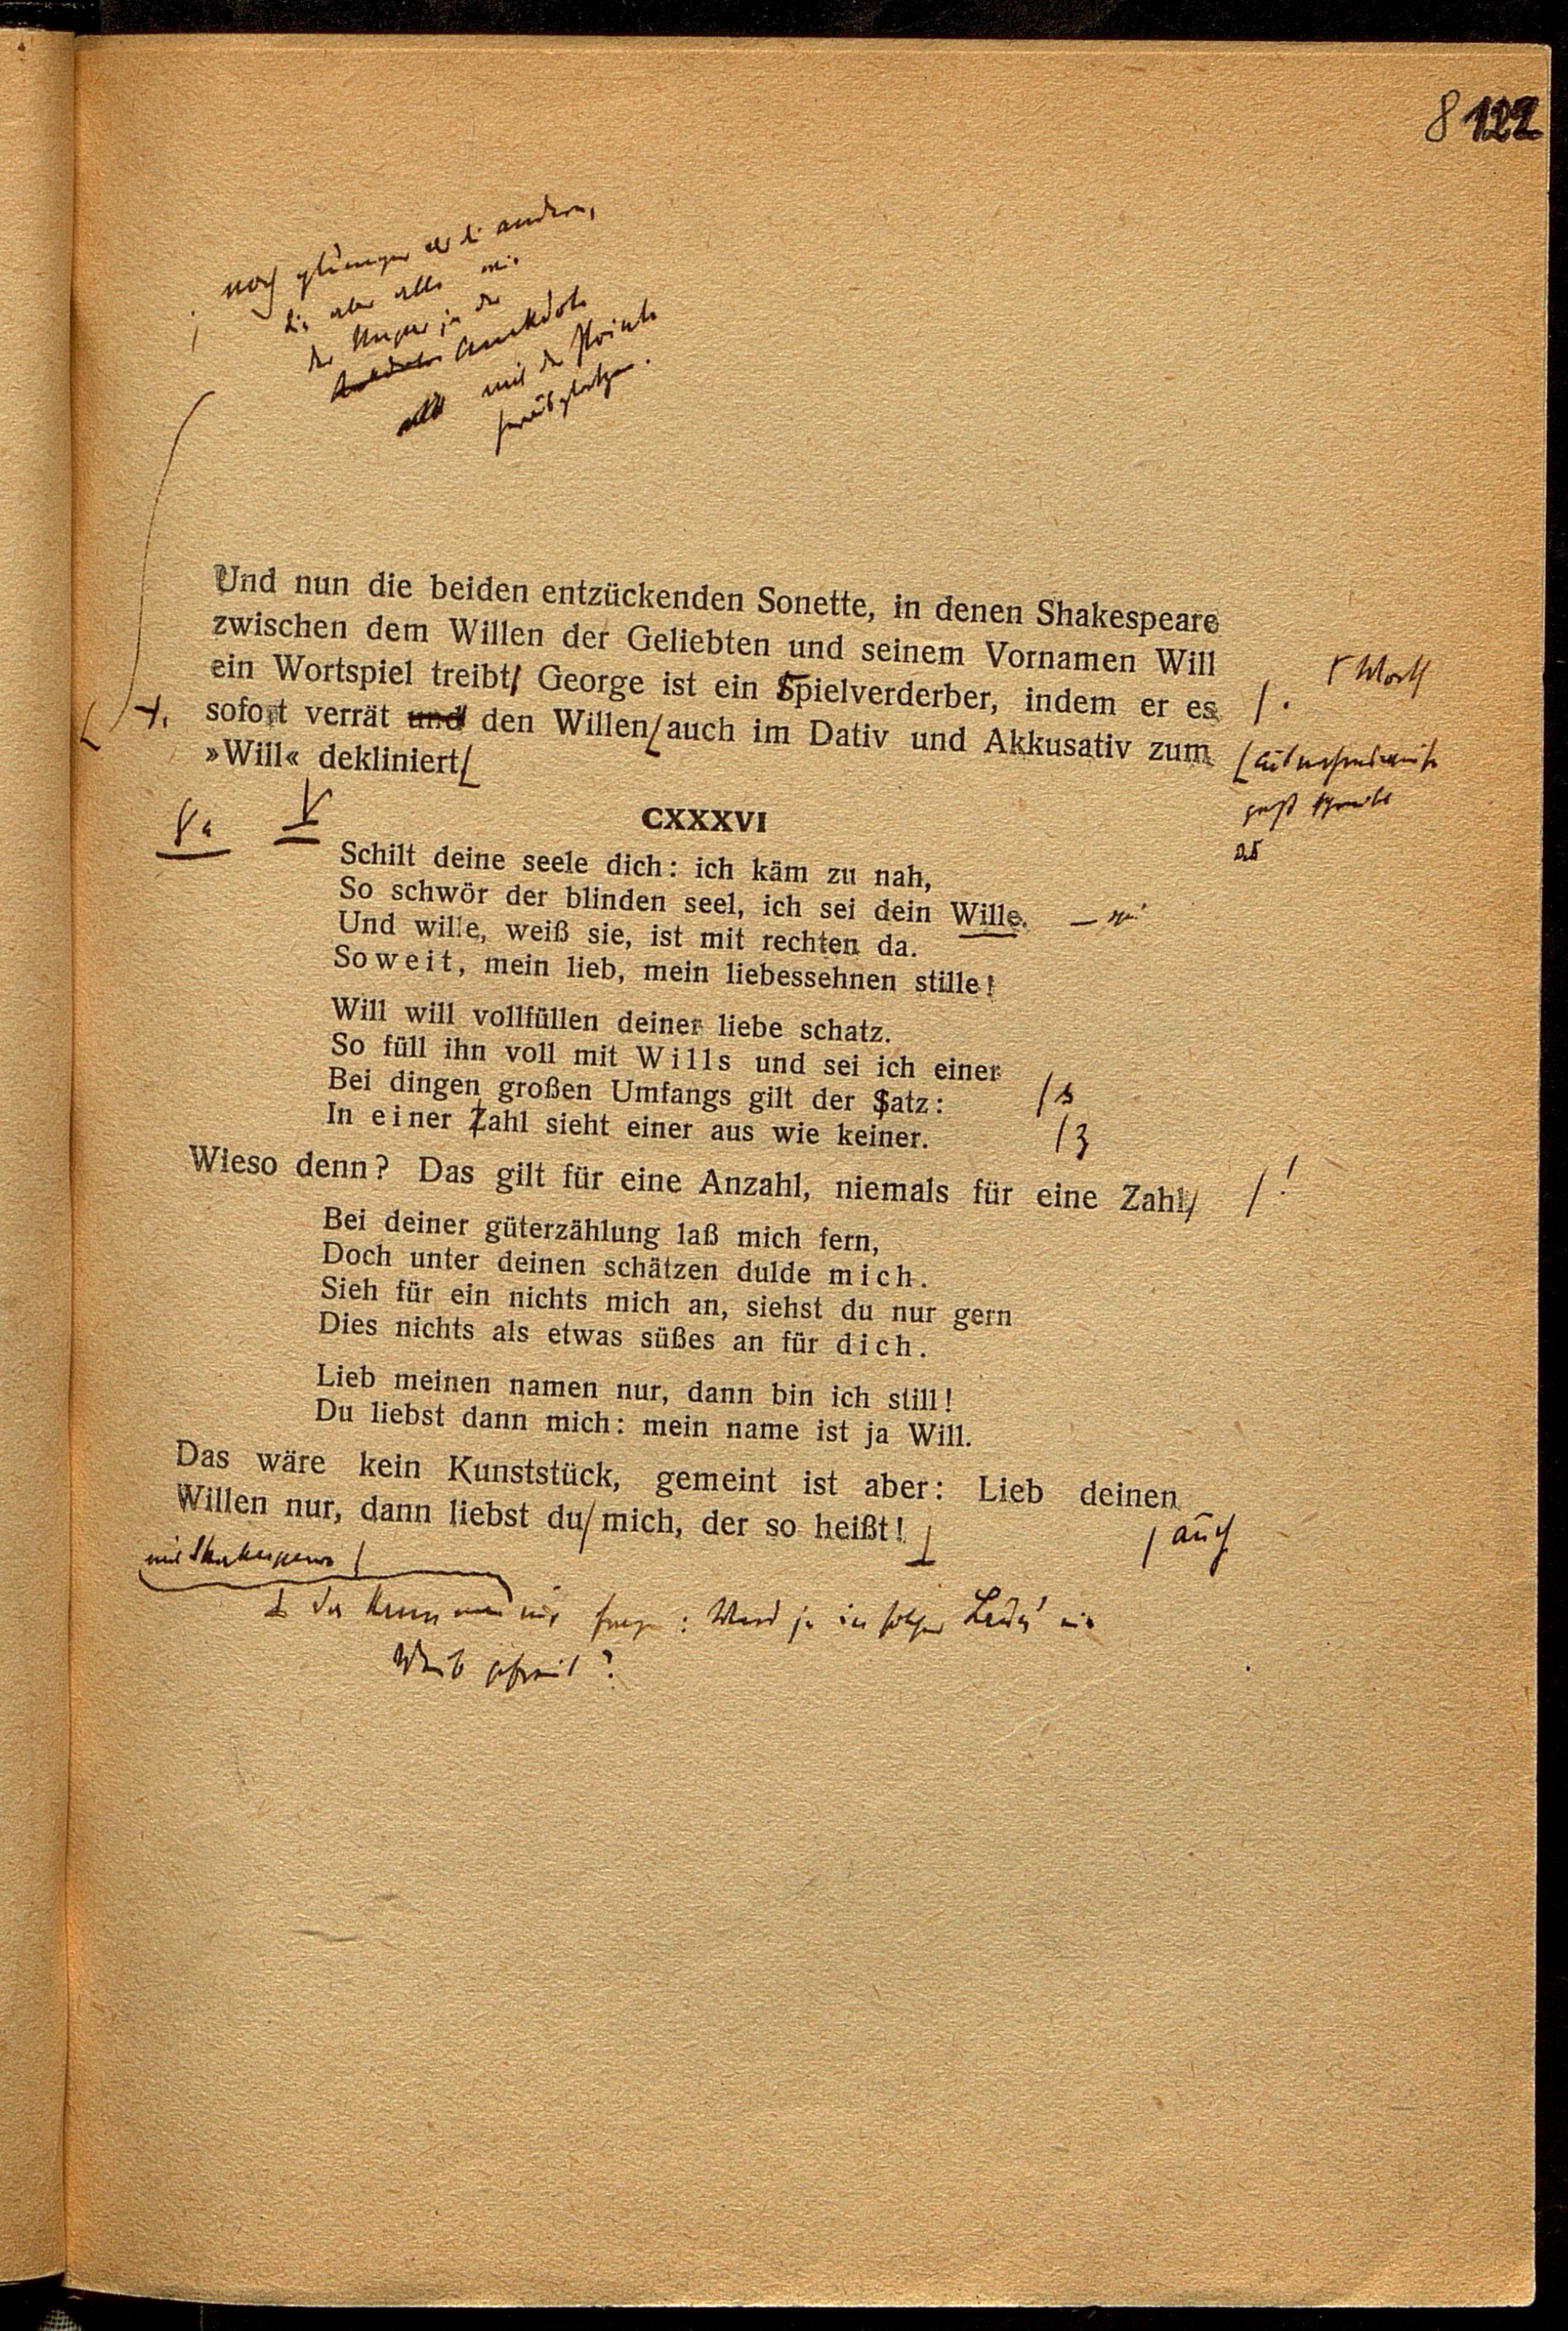 8 122
noch
andern,
Anekdote
mit der Pointe
Und nun die beiden entzückenden Sonette, in denen Shakespeare
zwischen dem Willen der Geliebten und seinem Vornamen Will
ein Wortspiel treibt/ George ist ein Spielverderber, indem er es
sofort verrät und den Willen auch im Dativ und Akkusativ zum
»Will« dekliniert
CXXXVI
Schilt deine seele dich: ich käm zu nah,
So schwör der blinden seel, ich sei dein Wille.
Und wille, weiß sie, ist mit rechten da.
Soweit, mein lieb, mein liebessehnen stille!
Will will vollfüllen deiner liebe schatz.
So füll ihn voll mit Wills und sei ich einer
Bei dingen großen Umfangs gilt der Satz:
/s
In einer Zahl sieht einer aus wie keiner.
/z
Wieso denn? Das gilt für eine Anzahl, niemals für eine Zahl/
/!
Bei deiner güterzählung laß mich fern,
Doch unter deinen schätzen dulde mich.
Sieh für ein nichts mich an, siehst du nur gern
Dies nichts als etwas süßes an für dich.
Lieb meinen namen nur, dann bin ich still!
Du liebst dann mich: mein name ist ja Will.
Das wäre kein Kunststück, gemeint ist aber: Lieb deinen
Willen nur, dann liebst du/mich, der so heißt!
/ auch
mit Shakespeare
: Ward je in solcher Laun' ein
Weib gefreit?